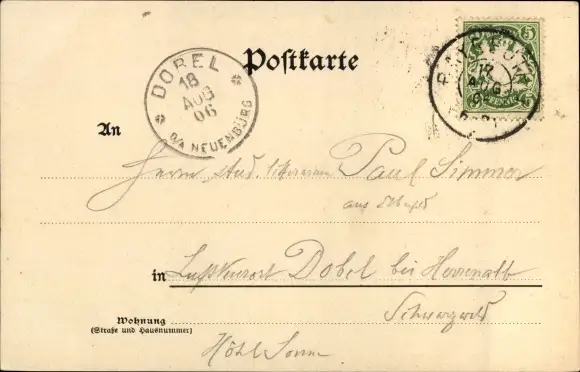 Postkarte
DOBEL
18
AUG
06
O/A NEUENBÜRG
5
18
AUG
PFENNIG
An
Herrn stud. Paul Simmer
aus
in Luftkurort Dobel bei Herrenalb
Schwarzwald
Wohnung
(Straße und Hausnummer)
Hôtel Sonne